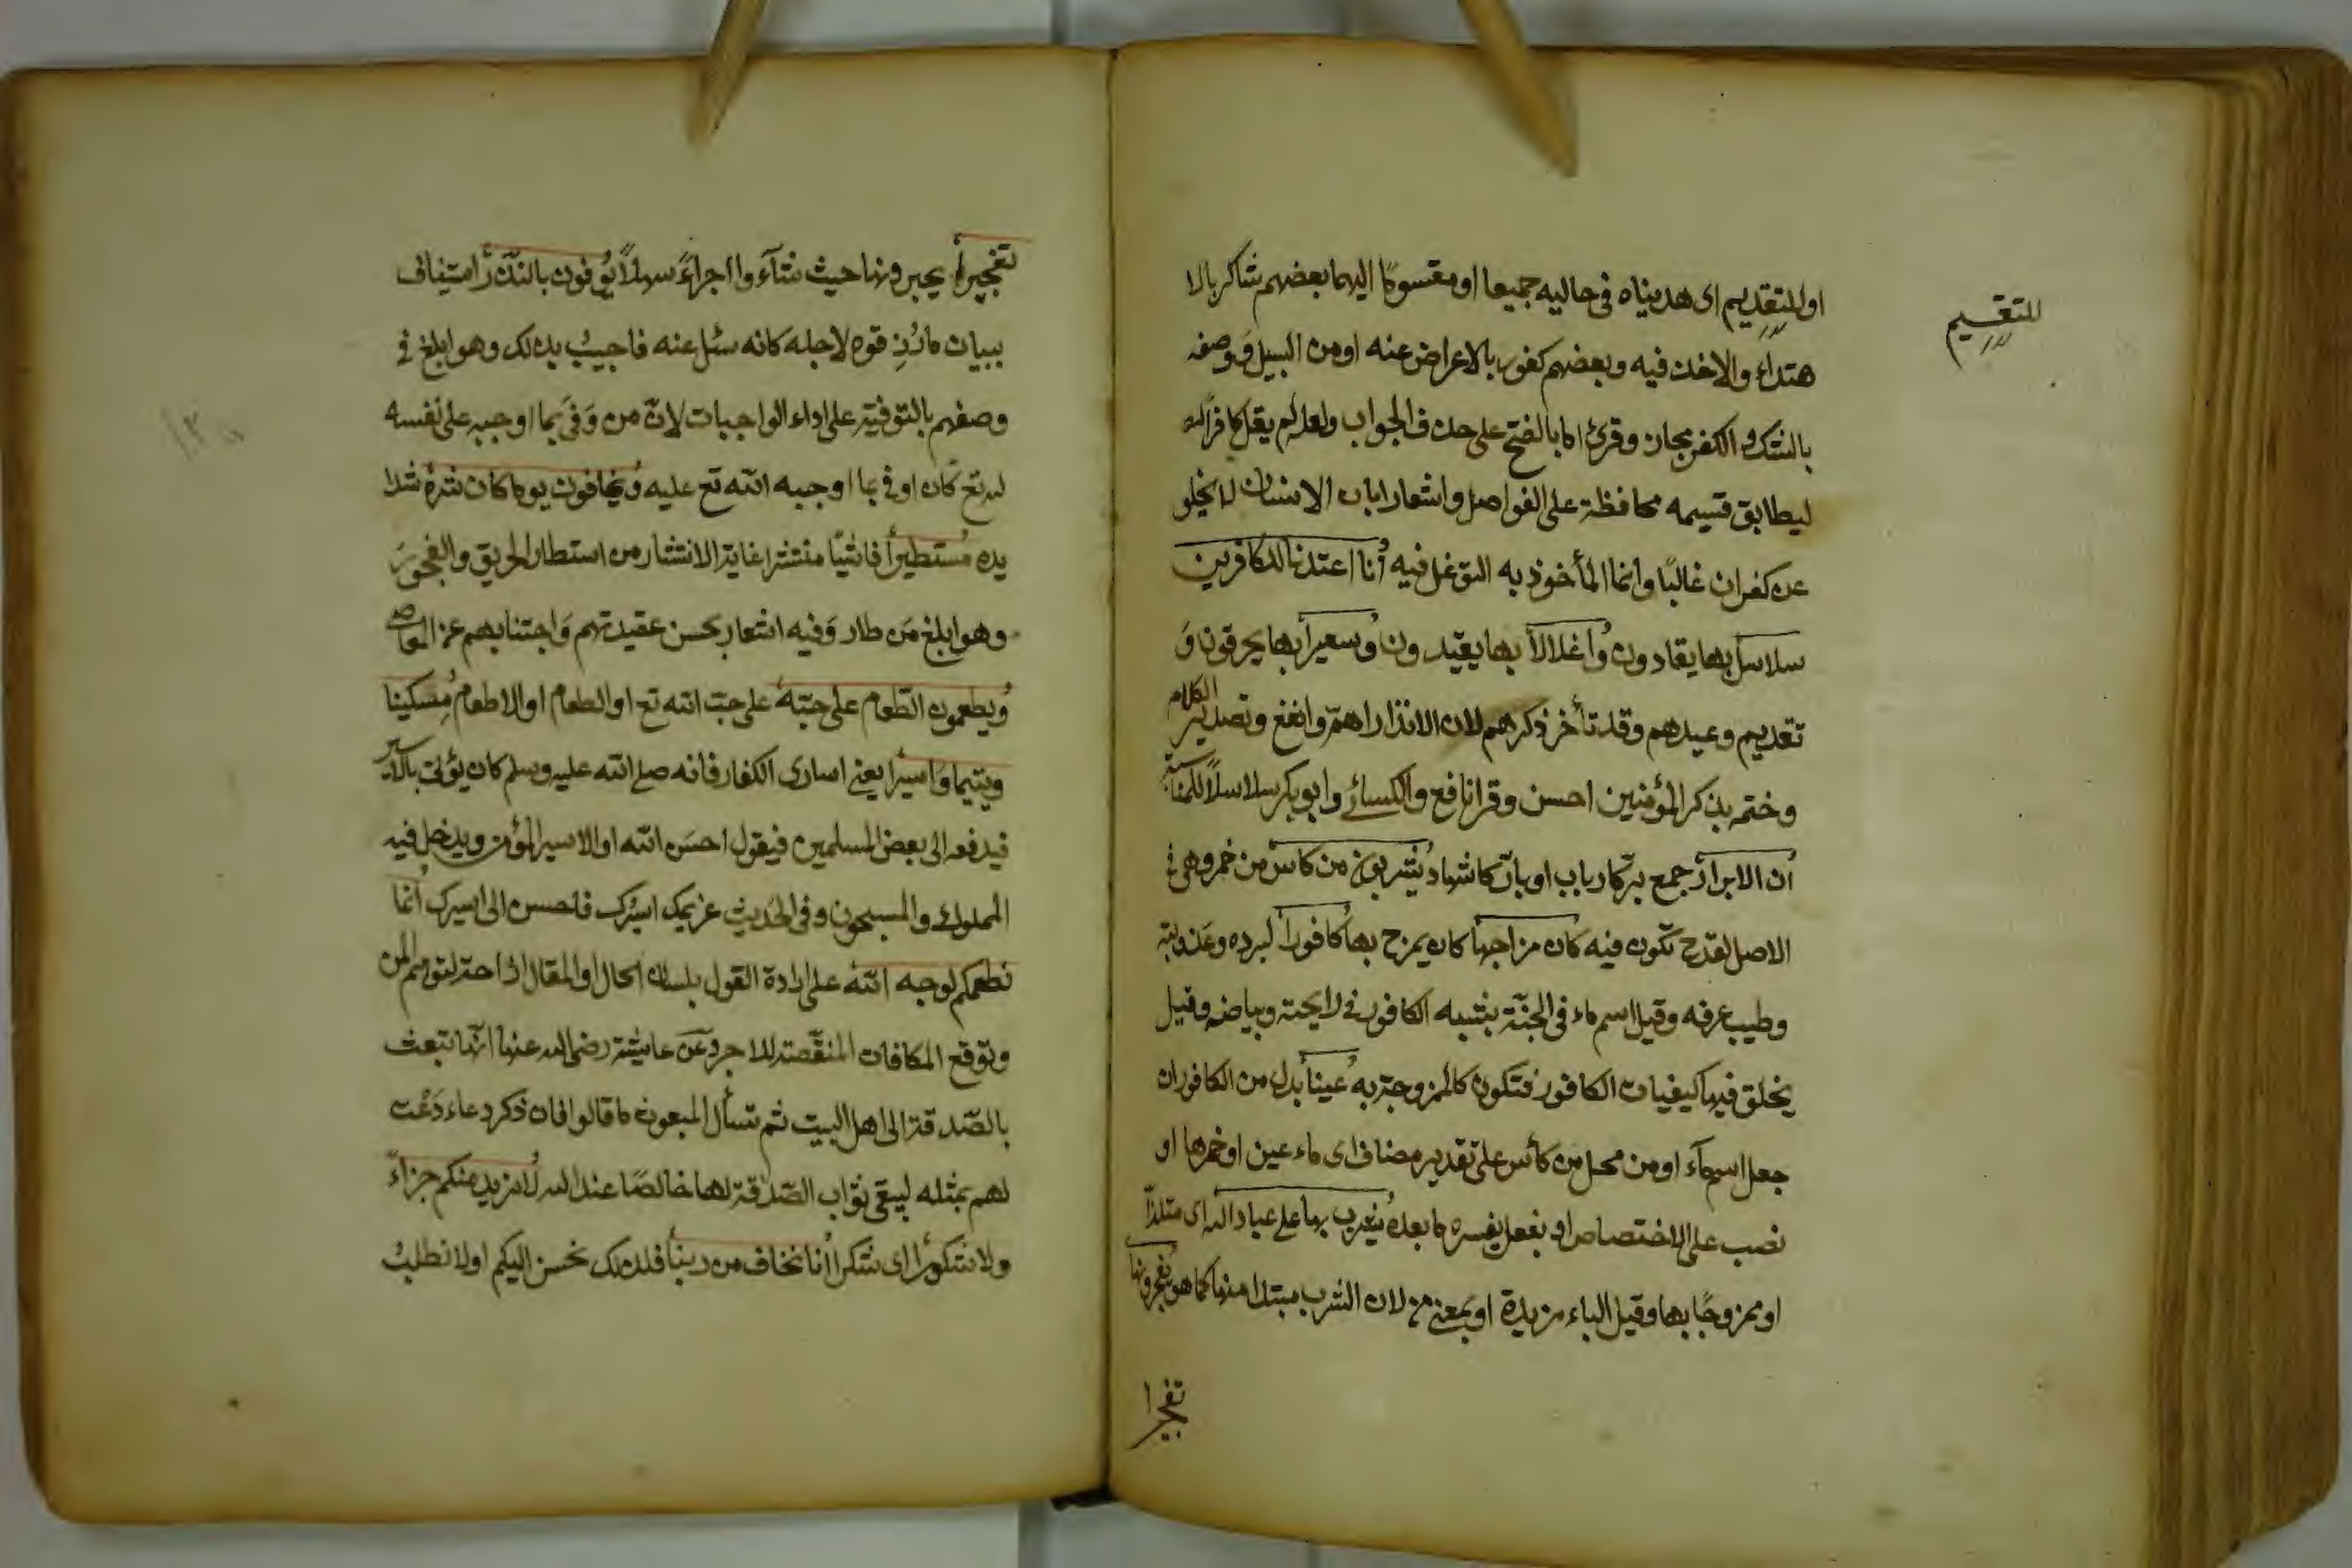 للتقسيم
او للتقديم اى هديناه فى حاليه جميعا او مقسومًا اليهما بعضهم شاكر بالا
هتداء والاخذ فيه وبعضهم كفور بالاعراض عنه او من السبيل ووصفه
بالشكر والكفر مجاز وقرئ اما بالفتح على حذف الجواب ولعله لم يقل كافرًا
ليطابق قسيمه محافظة على الفواصل واشعارا بان الانسان لا يخلو
عن كفران غالبًا وانما المأخوذ به التوغل فيه أنا اعتدنا للكافرين
سلاسل بها يقادون واغلالاً بها يقيّدون وسعيراً بها يحرقون وَ
تقديم وعيدهم وقد تأخر ذكرهم لان الانذار اهمّ وانفع وتصدير الكلام
وختمه بذكر المؤمنين احسن وقرا نافع والكسائى وابو بكر سلاسلاً للمناسبة
ان الابرار جمع برّ كارباب او بارّ كاشهاد يشربون من كاس من خمر وهى فى
الاصل لقدح تكون فيه كان مزاجها كان يمزج بها كافورا لبرده وعذوبته
وطيب عرفه وقيل اسم ماء فى الجنّة يشبه الكافور فى رايحته وبياضه وقيل
يخلق فيها كيفيات الكافور فتكون كالممزوجة به عينا بدل من الكافور ان
جعل اسم ماء او من محل من كأس على تقدير مضاف اى ماء عين او خمرها او
نصب على الاختصاص او بفعل يفسره ما بعده يشرب بها على عباد الله اى متلذّا
او ممزوجًا بها وقيل الباء مزيدة او بمعنى من لان الشرب مبتدا منها كما هو يفجرونها
تفجيرا
تفجيراً يجبرونها حيث شآءوا اجراءً سهلاً يُوفون بالنّذر استيناف
ببيان ما رُزِقوه لاجله كانه سئل عنه فاجيب بذلك وهو ابلغ فى
وصفهم بالتوفية على اداء الواجبات لانّ من وَفىَ بما اوجبه على نفسه
لله تع كان اوفى بما اوجبه الله تع عليه ويخافون يوما كان شره شدا
يده مُستطيراً فاشيًا منتشرا غاية الانتشار من استطار الحريق والفجر وَ
وهو ابلغ من طار وَفيه اشعار بحسن عقيدتهم وَاجتنابهم عن المعاصى
ويطعمون الطّعام على حبّه على حبّ الله تع او الطعام او الاطعام مِسكينا
ويتيما وَاسيرا يعنى اسارى الكفار فانه صلى الله عليه وسلم كان يؤتى بالاسير
فيدفعه الى بعض المسلمين فيقول احسَن الله او الاسير المؤمن ويدخل فيه
المملوك والمسجون وفى الحديث غريمك اسيرك فاحسن الى اسيرك انما
نطعمكم لوجه الله على ارادة القول بلسان الحال او المقال ازاحة لتوهم المن
وتوقع المكافات المنقّصة للاجر وعَن عايشة رضى الله عنها انّها تبعث
بالصّدقة الى اهل البيت ثم تسأل المبعوث ما قالوا فان ذكر دعاء دَعَت
لهم بمثله ليبقى ثواب الصّدقة لها خالصًا عند الله لا نريد منكم جزاءً
ولا شكوراً اى شكرا انا نخاف من ربنا فلذلك نحسن اليكم او لا نطلب